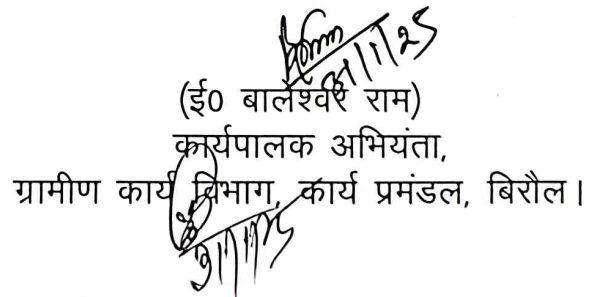 (ई0 बालेश्वर राम)
कार्यपालक अभियंता,
ग्रामीण कार्य विभाग, कार्य प्रमंडल, बिरौल।